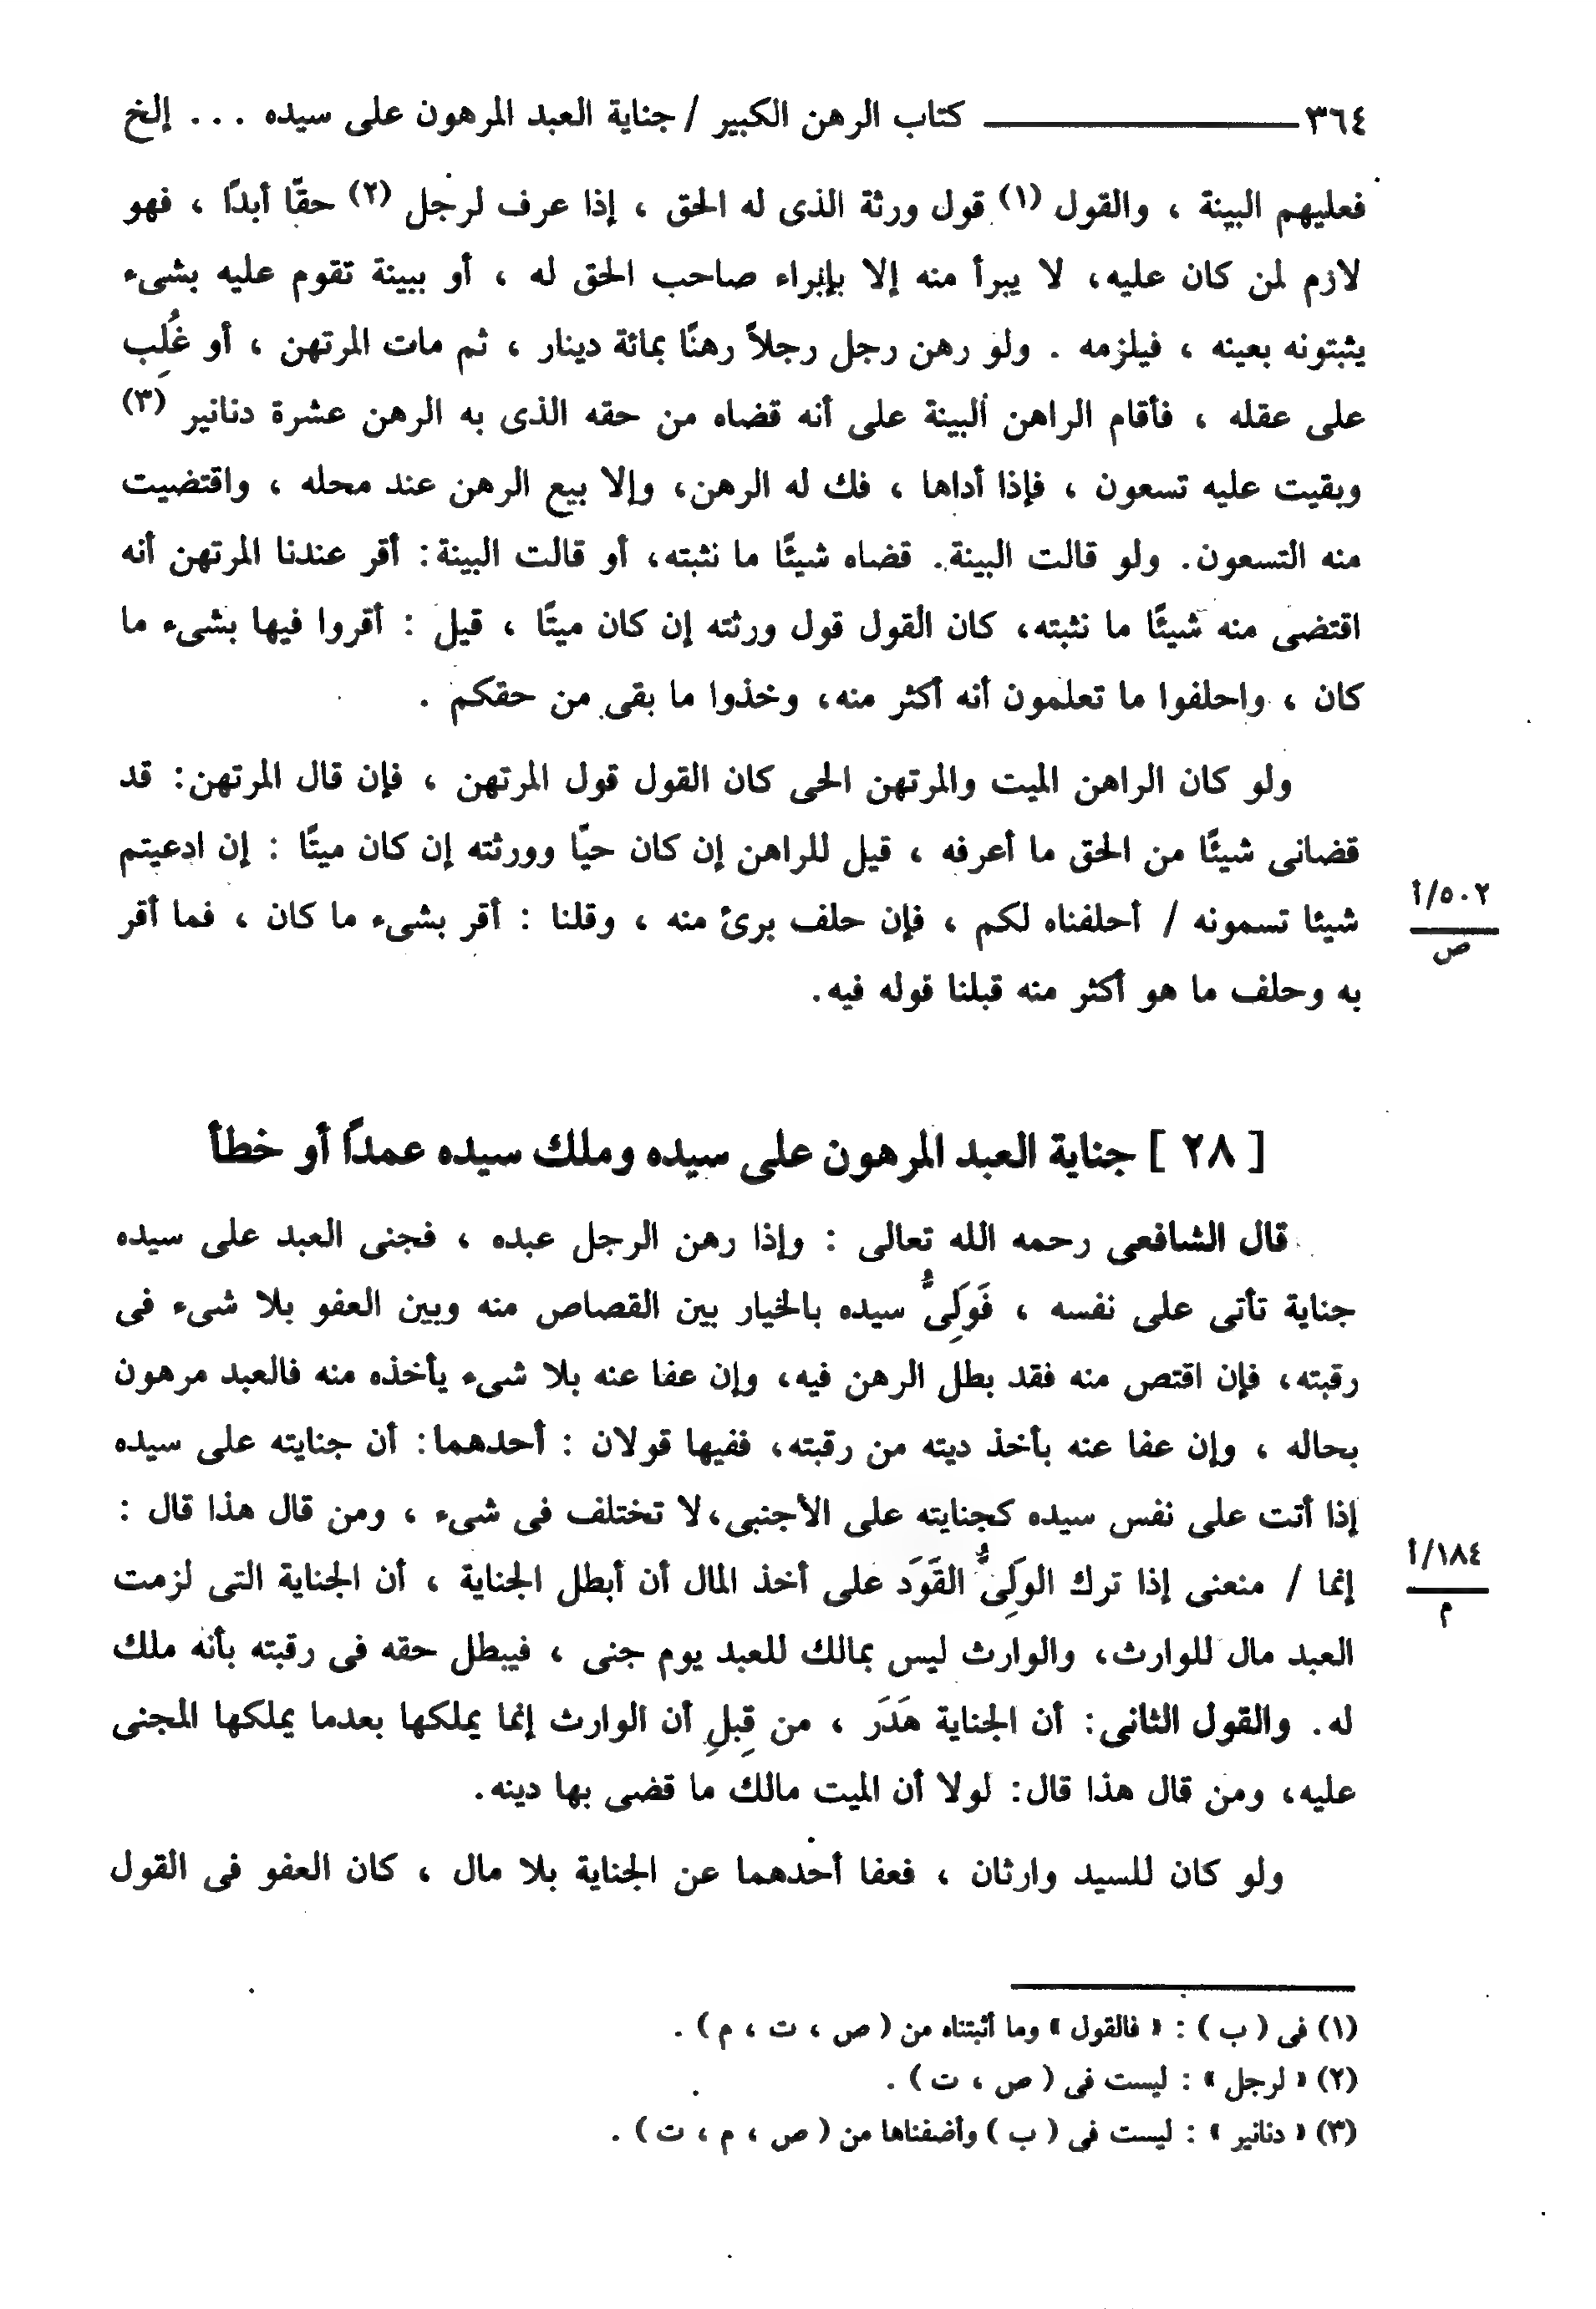 ٣٦٤ كتاب الرهن الكبير / جناية العبد المرهون على سيده ... إلخ
فعليهم البينة ، والقول (١) قول ورثة الذى له الحق ، إذا عرف لرجل (٢) حقّا أبدًا ، فهو
لازم لمن كان عليه، لا يبرأ منه إلا بإبراء صاحب الحق له ، أو ببينة تقوم عليه بشىء
يثبتونه بعينه ، فيلزمه . ولو رهن رجل رجلاً رهنًا بمائة دينار ، ثم مات المرتهن ، أو غُلِب
على عقله ، فأقام الراهن البينة على أنه قضاه من حقه الذى به الرهن عشرة دنانير (٣)
وبقيت عليه تسعون ، فإذا أداها ، فك له الرهن، وإلا بيع الرهن عند محله ، واقتضيت
منه التسعون. ولو قالت البينة. قضاه شيئًا ما نثبته، أو قالت البينة: أقر عندنا المرتهن أنه
اقتضى منه شيئًا ما نثبته، كان القول قول ورثته إن كان ميتًا ، قيل : أقروا فيها بشىء ما
كان ، واحلفوا ما تعلمون أنه أكثر منه، وخذوا ما بقى من حقكم .
ولو كان الراهن الميت والمرتهن الحى كان القول قول المرتهن ، فإن قال المرتهن: قد
قضانى شيئًا من الحق ما أعرفه ، قيل للراهن إن كان حيّا وورثته إن كان ميتًا : إن ادعيتم
شيئا تسمونه / أحلفناه لكم ، فإن حلف برئ منه ، وقلنا : أقر بشىء ما كان ، فما أقر
٥٠٢/أ
ص
به وحلف ما هو أكثر منه قبلنا قوله فيه.
[ ٢٨ ] جناية العبد المرهون على سيده وملك سيده عمداً أو خطأ
قال الشافعى رحمه الله تعالى : وإذا رهن الرجل عبده ، فجنى العبد على سيده
جناية تأتى على نفسه ، فَوَلِىُّ سيده بالخيار بين القصاص منه وبين العفو بلا شىء فى
رقبته، فإن اقتص منه فقد بطل الرهن فيه، وإن عفا عنه بلا شىء يأخذه منه فالعبد مرهون
بحاله ، وإن عفا عنه بأخذ ديته من رقبته، ففيها قولان : أحدهما: أن جنايته على سيده
إذا أتت على نفس سيده كجنايته على الأجنبى،لا تختلف فى شىء ، ومن قال هذا قال :
إنما / منعنى إذا ترك الولِىُّ القَوَد على أخذ المال أن أبطل الجناية ، أن الجناية التى لزمت
١٨٤/أ
م
العبد مال للوارث، والوارث ليس بمالك للعبد يوم جنى ، فيبطل حقه فى رقبته بأنه ملك
له. والقول الثانى: أن الجناية هَدَر ، من قِبلِ أن الوارث إنما يملكها بعدما يملكها المجنى
عليه، ومن قال هذا قال: لولا أن الميت مالك ما قضى بها دينه.
ولو كان للسيد وارثان ، فعفا أحدهما عن الجناية بلا مال ، كان العفو فى القول
(١) فى ( ب ) : « فالقول » وما أثبتناه من ( ص ، ت ، م ) .
(٢) « لرجل » : ليست فى ( ص ، ت ) .
(٣) « دنانير » : ليست فى ( ب ) وأضفناها من ( ص ، م ، ت ) .